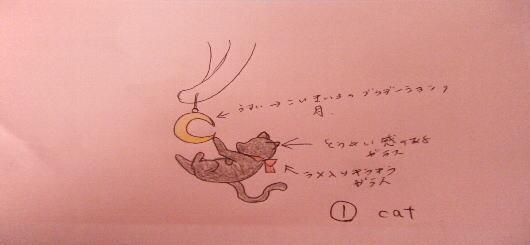 うすい→こいきいろのグラデーションの
月.
とうめい感のある
ガラス
ラメ入りキラキラ
ガラス
① cat